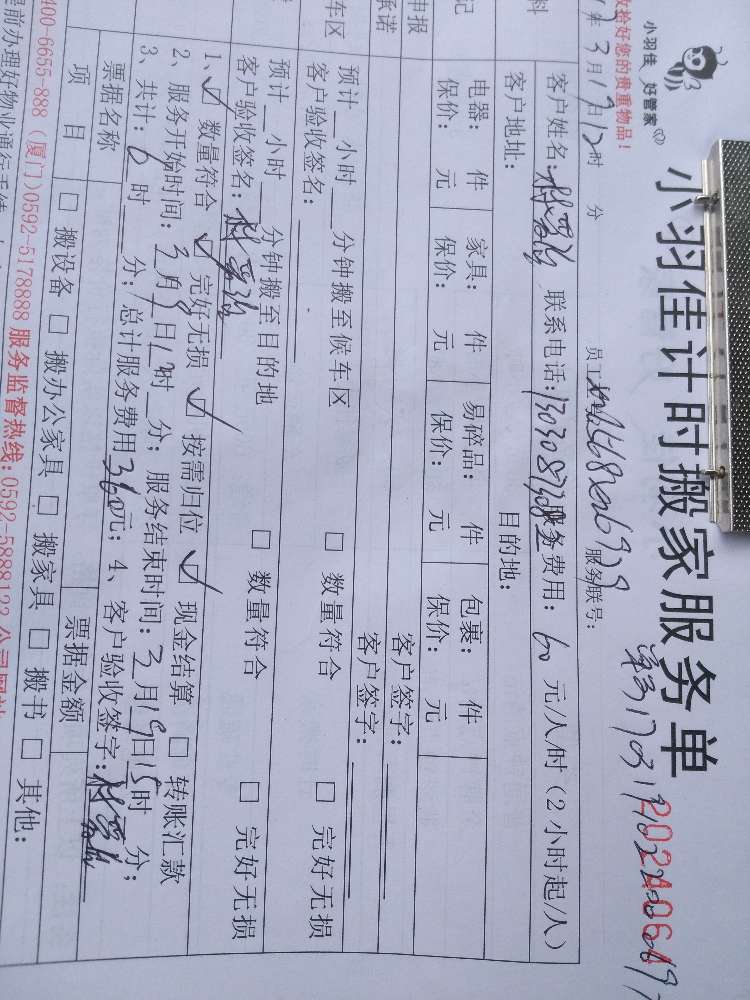 小羽佳 好管家
小羽佳计时搬家服务单
2024064
收拾好您的贵重物品！
年3月19日12时 分 员工 服务联号：
料 客户姓名： 联系电话： 服务费用：60元/人/时（2小时起/人）
客户地址： 目的地：
记 电器： 件 家具： 件 易碎品： 件 包裹： 件
保价： 元 保价： 元 保价： 元 保价： 元
申报 客户签字：
承诺 客户签字：
车区 预计 小时 分钟搬至候车区 □ 数量符合 □ 完好无损
客户验收签名：
预计 小时 分钟搬至目的地 □ 数量符合 □ 完好无损
客户验收签名：
1、☑ 数量符合 ☑ 完好无损 ☑ 按需归位 ☑ 现金结算 □ 转账汇款
2、服务开始时间：3月19日12时 分；服务结束时间：3月19日15时 分；
3、共计：6时 分；总计服务费用360元；4、客户验收签字：
票据名称 票据金额
项 目 □ 搬设备 □ 搬办公家具 □ 搬家具 □ 搬书 □ 其他：
400-6655-888（厦门）0592-5178888 服务监督热线：0592-5888123 公司网站
提前办理好物业通行手续